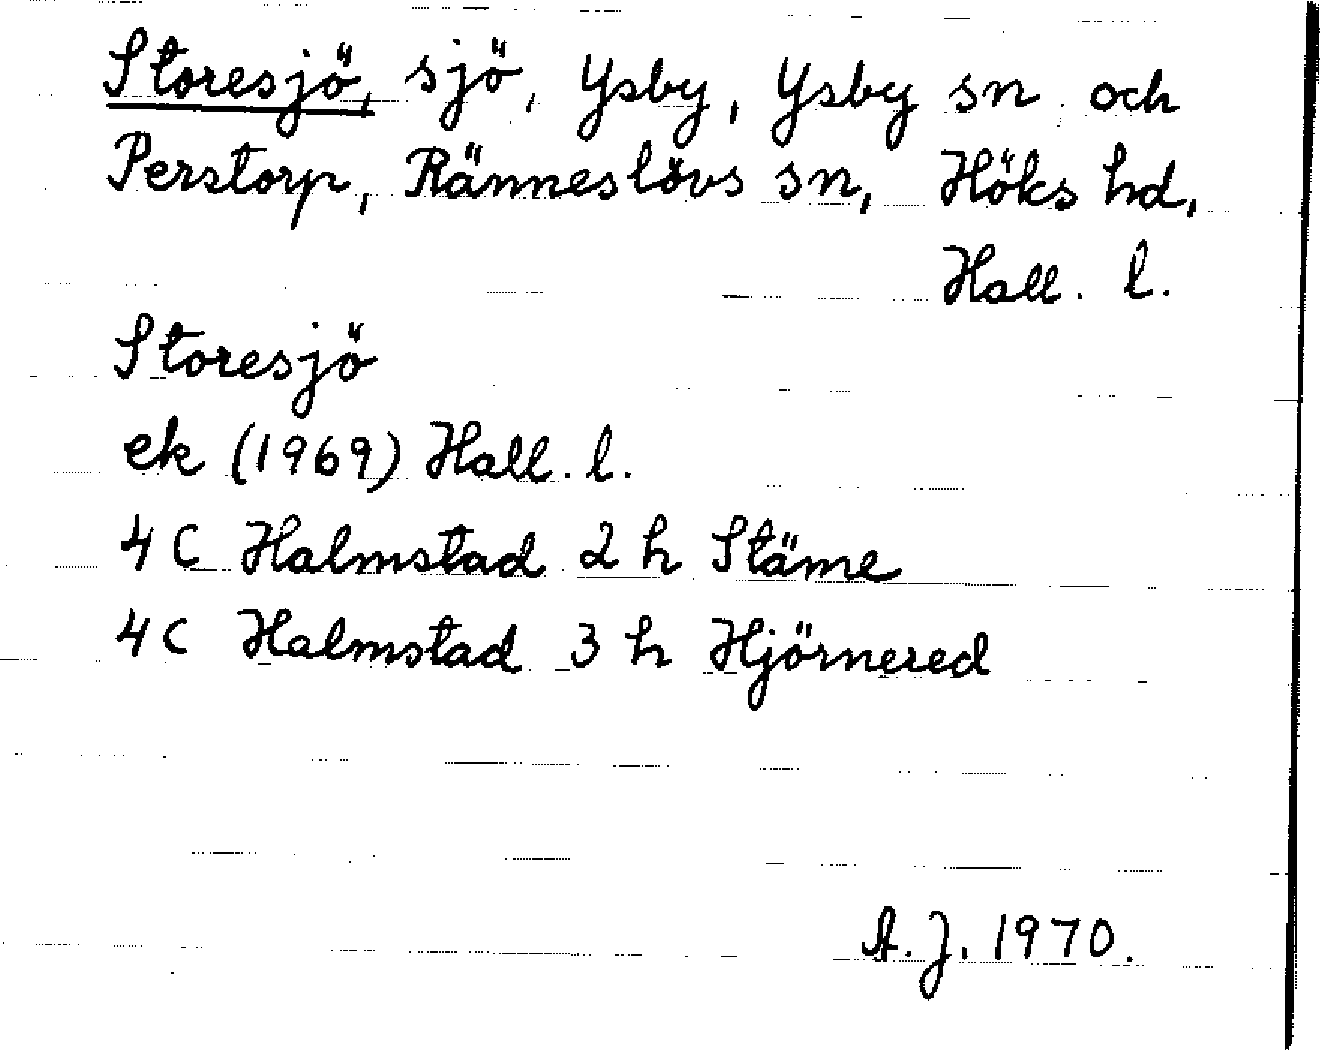 Storesjö, sjö, Ysby, Ysby sn och
Perstorp, Ränneslövs sn, Höks hd,
Hall. l.
Storesjö
ek (1969) Hall. l.
4 C Halmstad 2 h Stäme
4 C Halmstad 3 h Hjörnered
A. J. 1970.